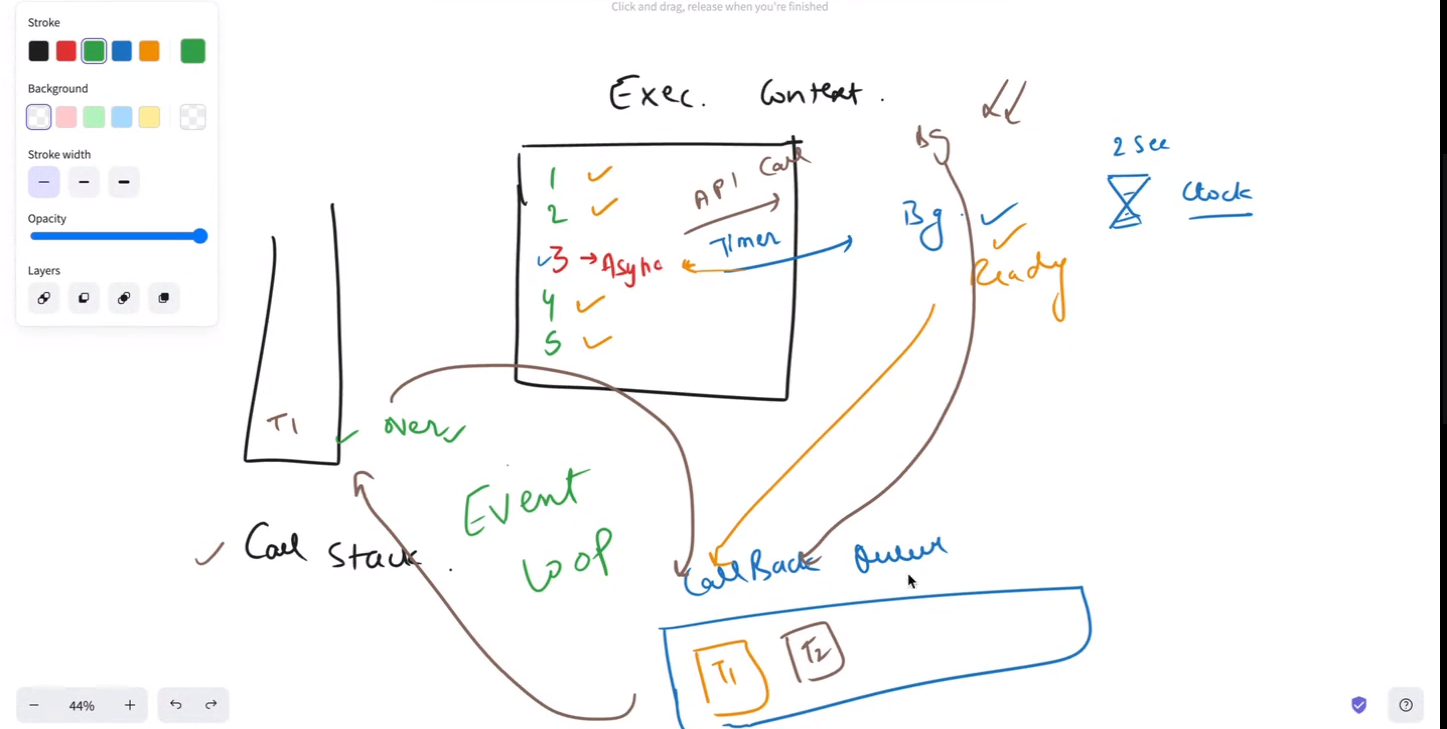 Click and drag, release when you're finished
Stroke
Background
Stroke width
Opacity
Layers
44%
Exec. Context.
1
2
3 → Async
4
5
API Call
Timer
Bg
Bg
Ready
2 Sec
Clock
T1
over
Call Stack.
Event
Loop
CallBack Queue
T1
T2